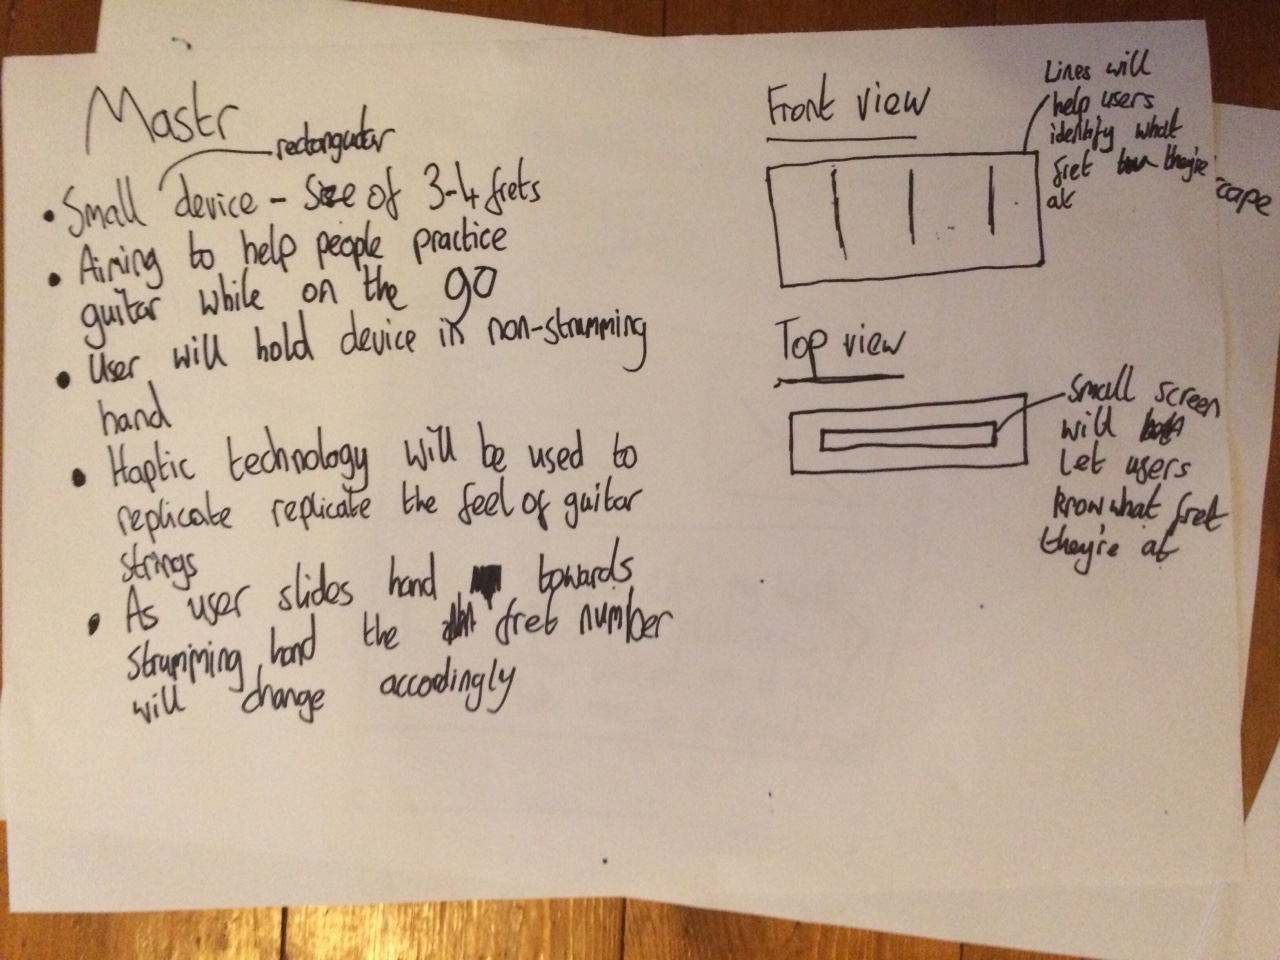 Mastr
rectangular
• Small device - Size of 3-4 frets
• Aiming to help people practice
guitar while on the go
• User will hold device in non-strumming
hand
• Haptic technology will be used to
replicate replicate the feel of guitar
strings
• As user slides hand towards
strumming hand the fret number
will change accordingly
Front view
Lines will
help users
identify what
fret they're
at
Top view
Small screen
will
let users
know what fret
they're at
cape